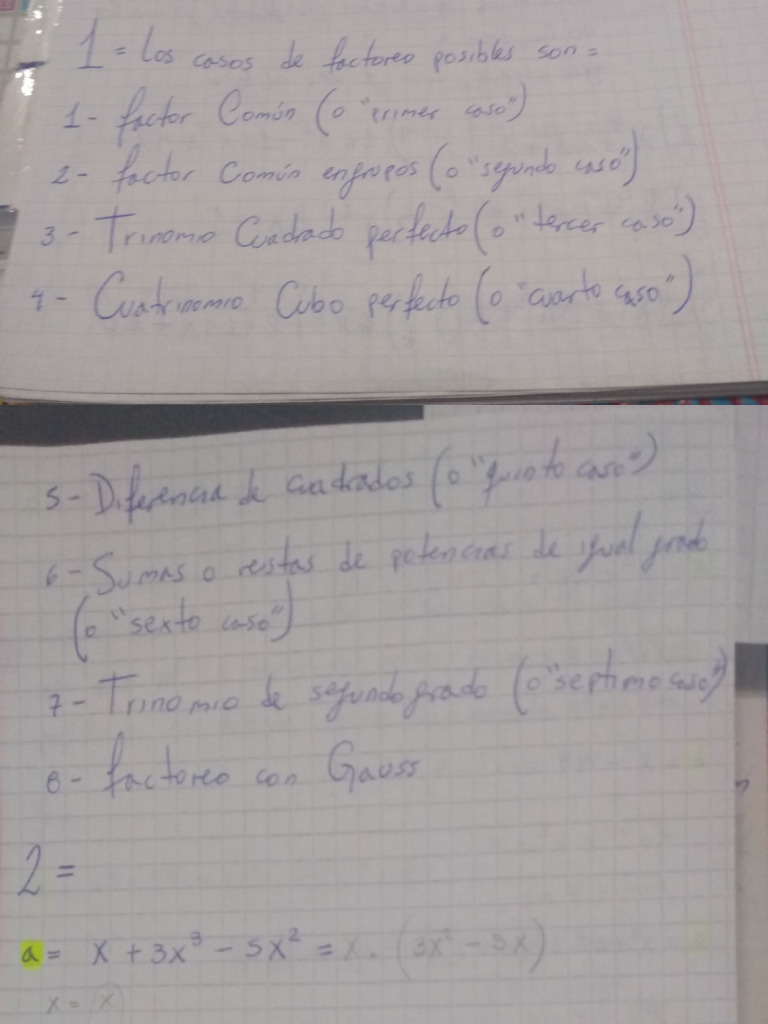 1= Los casos de factoreo posibles son=
1- factor Común (o "primer caso")
2- factor Común en grupos (o "segundo caso")
3- Trinomio Cuadrado perfecto (o "tercer caso")
4- Cuatrinomio Cubo perfecto (o "cuarto caso")
5- Diferencia de cuadrados (o "quinto caso")
6- Sumas o restas de potencias de igual grado
(o "sexto caso")
7- Trinomio de segundo grado (o "septimo caso")
8- factoreo con Gauss
2=
a= x + 3x³ - 5x² = x. (3x² - 5x)
x = x